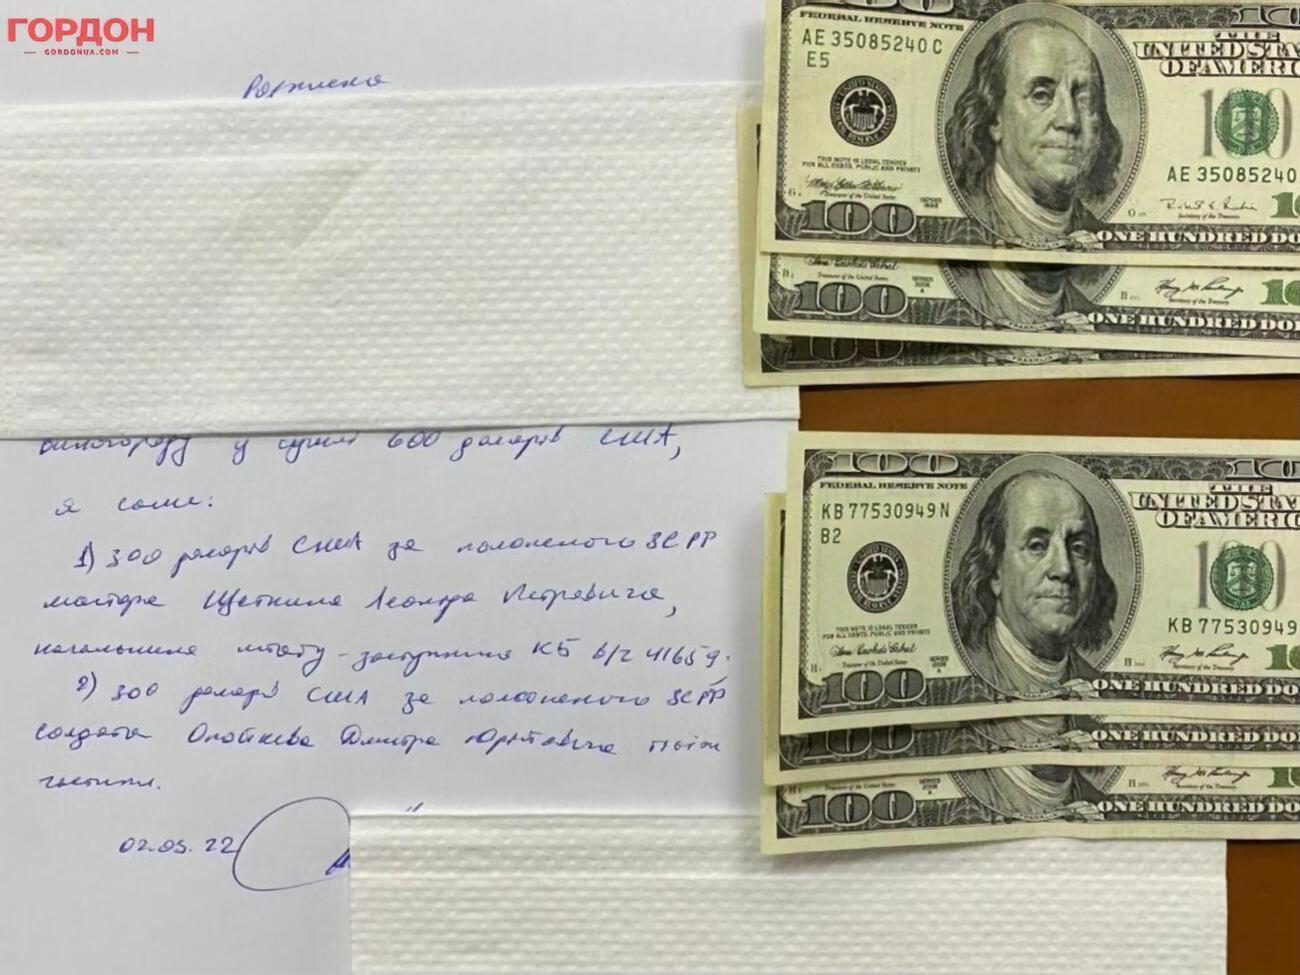 ГОРДОН
GORDONUA.COM
Розписка
винагороду у сумі 600 доларів США,
а саме:
1) 300 доларів США за полоненого ЗС РФ
майора Щеткіна Леоніда Петровича,
начальника штабу - заступника КБ в/ч 41659.
2) 300 доларів США за полоненого ЗС РФ
солдата Дмитра Юрійовича тієї ж
частини.
02.05.22
FEDERAL RESERVE NOTE
AE 35085240 C
E5
THE
UNITED STA
OF AMERIC
100
THIS NOTE IS LEGAL TENDER
FOR ALL DEBTS, PUBLIC AND PRIVATE
AE 35085240
Treasurer of the United States
Secretary of the Treasury
100
ONE HUNDRED DO
Treasurer of the United States
Secretary of the Treasury
100
ONE HUNDRED DO
100
100
FEDERAL RESERVE NOTE
KB 77530949 N
B2
THE
UNITED STA
OF AMERIC
100
THIS NOTE IS LEGAL TENDER
FOR ALL DEBTS, PUBLIC AND PRIVATE
KB 77530949
Treasurer of the United States
Secretary of the Treasury
100
ONE HUNDRED DO
100
ONE HUNDRED DO
100
ONE HUNDRED DO